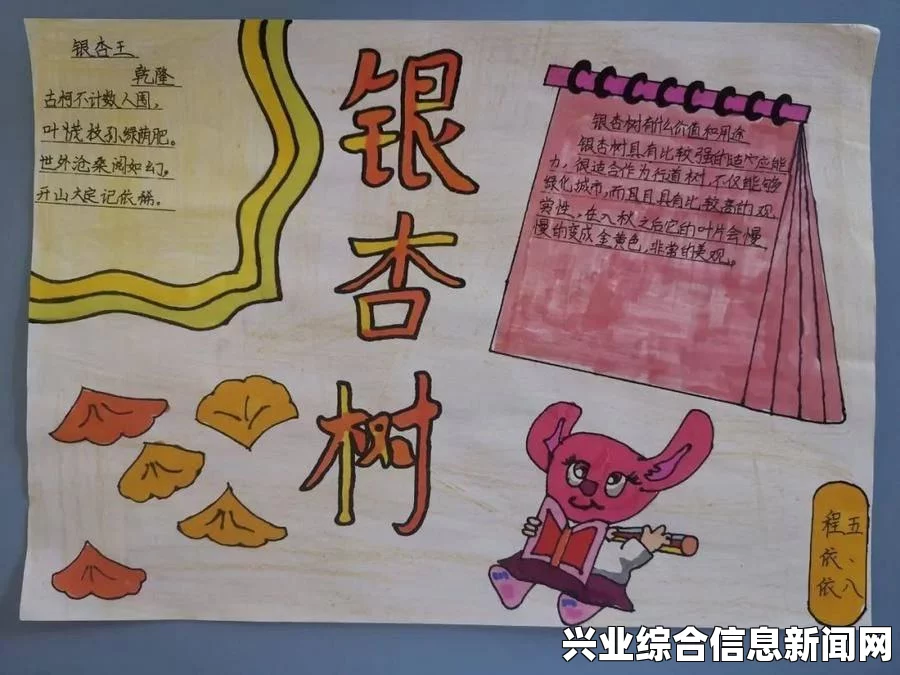 银杏王
乾隆
古柯不计数人围,
叶茂枝孙绿荫肥。
世外沧桑阅如幻,
开山大定记依稀。
银
杏
树
银杏树有什么价值和用途
银杏树具有比较强的适应能
力,很适合作为行道树,不仅能够
绿化城市,而且具有比较高的观
赏性,在入秋之后它的叶片会慢
慢的变成金黄色,非常的美观。
五、八
程依依
兴业综合信息新闻网